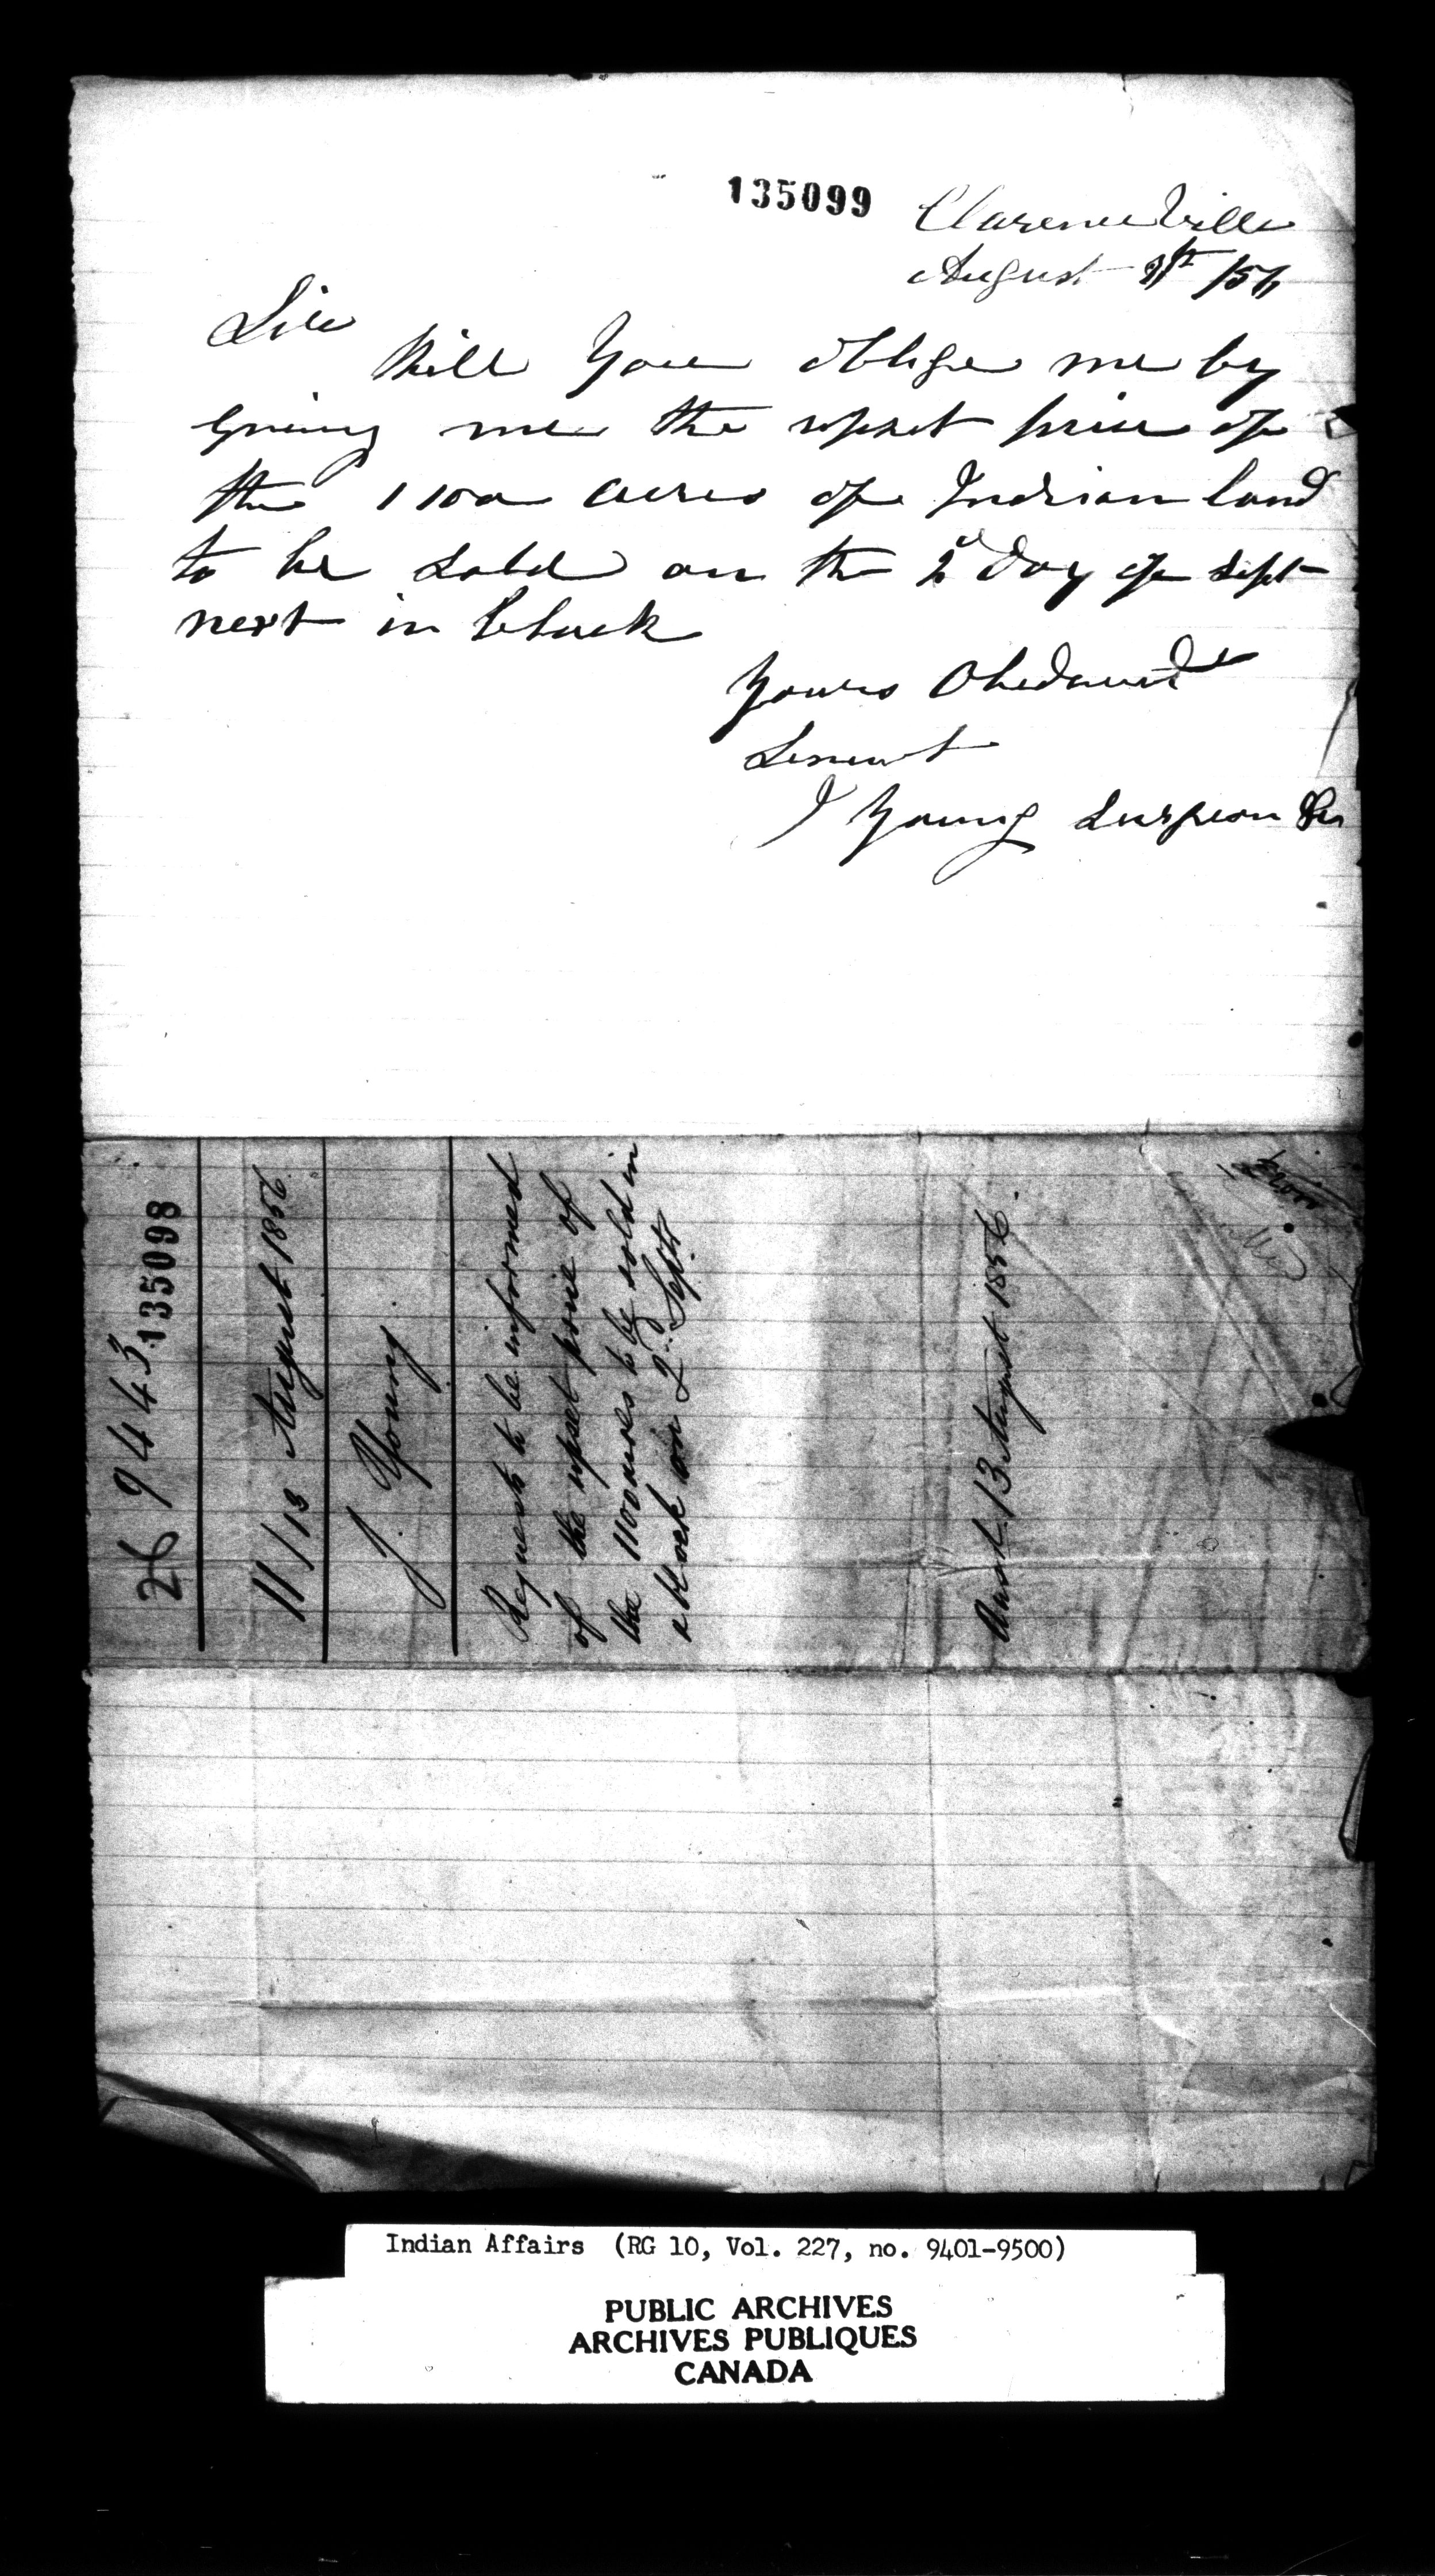 135099
Clarenceville
August 11th /56
Sir
Will you oblige me by
giving me the upset price of
the 1100 acres of Indian land
to be sold on the 2d day of Sept
next in block
Yours Obedeant
Servent
J Young Surgeon &c
26 9443
135098
11/13 August 1856.
J. Young.
Requests to be informed
of the upset price of
the 1100 acres to be sold in
a block on 2nd Septr.
Ansd. 13 August 1856.
Indian Affairs (RG 10, Vol. 227, no. 9401-9500)
PUBLIC ARCHIVES
ARCHIVES PUBLIQUES
CANADA